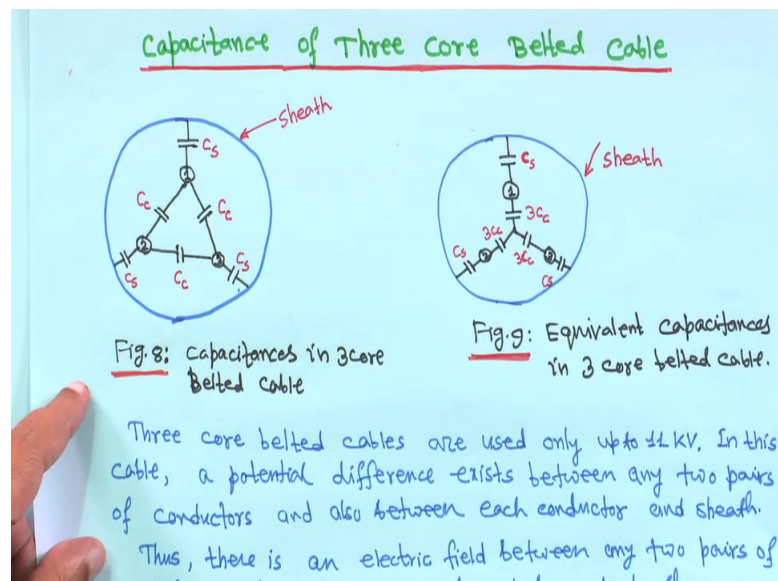 Capacitance of Three Core Belted Cable
sheath
Cs
1
Cc
Cc
2
3
Cs
Cc
Cs
Fig. 8: Capacitances in 3 core
Belted Cable
sheath
Cs
1
3Cc
3Cc
3Cc
Cs
2
3
Cs
Fig. 9: Equivalent capacitances
in 3 core belted cable.
Three core belted cables are used only upto 11 KV. In this
cable, a potential difference exists between any two pairs
of conductors and also between each conductor and sheath.
Thus, there is an electric field between any two pairs of